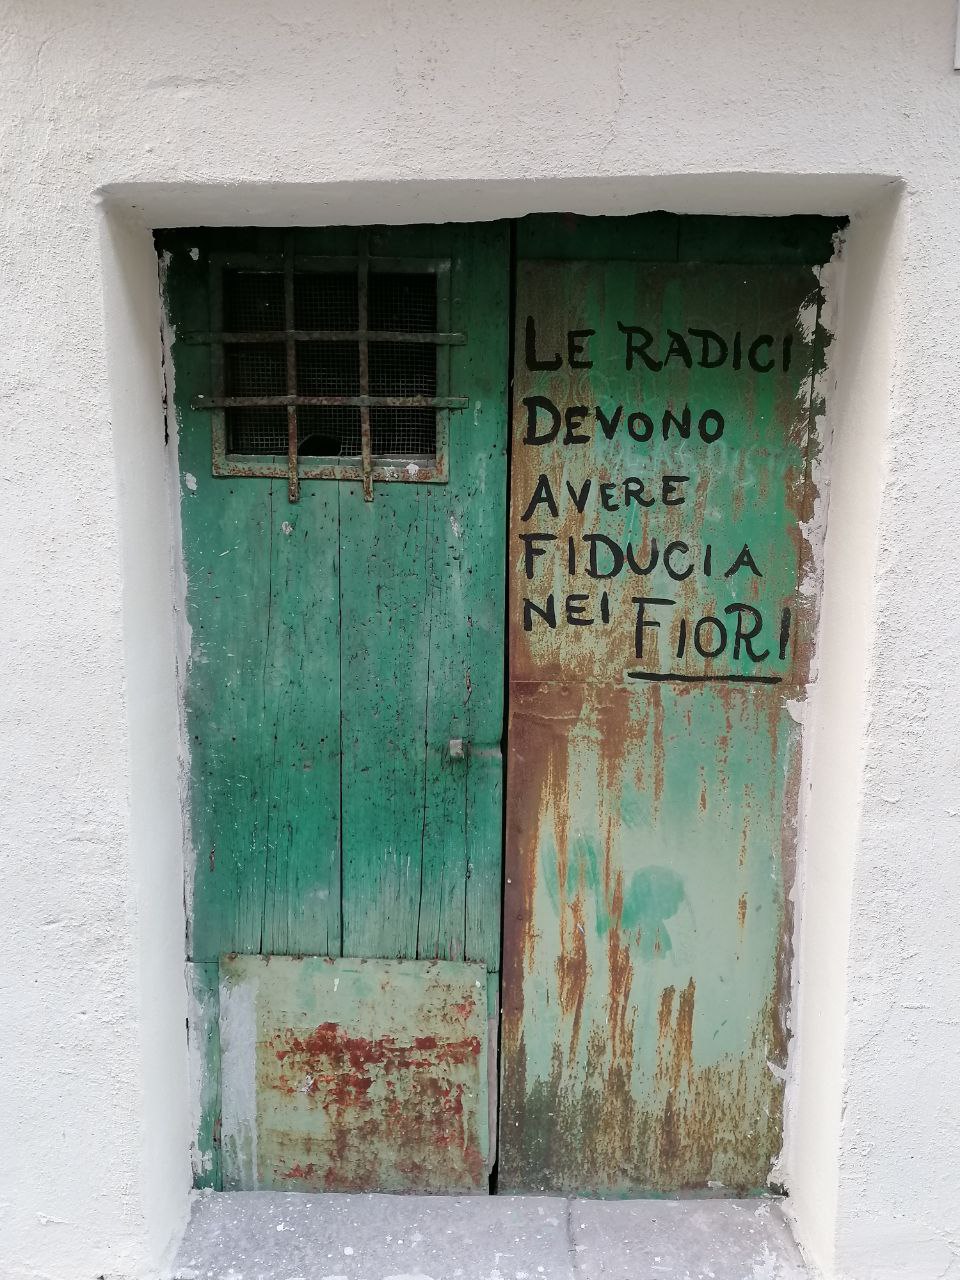 LE RADICI
DEVONO
AVERE
FIDUCIA
NEI FIORI